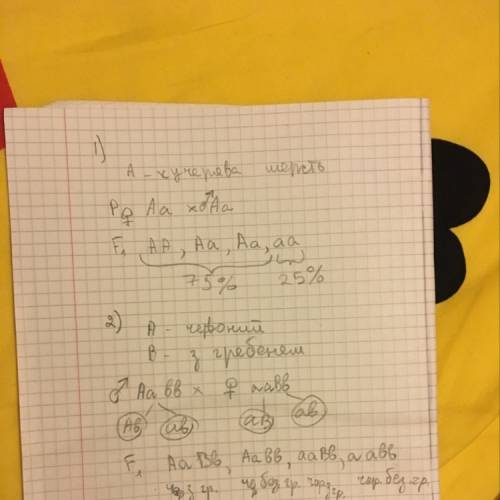 1)
A - кучерява шерсть
P ♀ Aa × ♂ Aa
F₁ AA, Aa, Aa, aa
75% 25%
2) A - червоний
B - з гребенем
♂ Aabb × ♀ aaBb
Ab ab aB ab
F₁ AaBb, Aabb, aaBb, aabb
чер з гр. чер без гр. чор з гр. чор. без. гр.